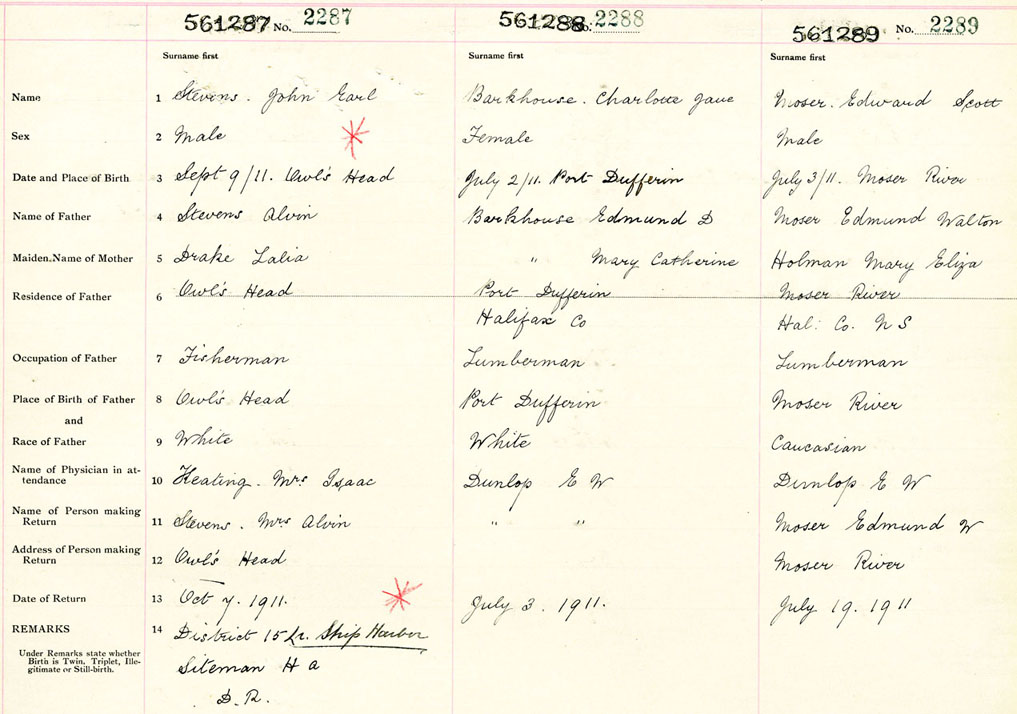 561287 No. 2287 561288 No. 2288 561289 No. 2289
Surname first Surname first Surname first
Name 1 Stevens. John Earl Barkhouse. Charlotte Jane Moser. Edward Scott
Sex 2 Male Female Male
Date and Place of Birth 3 Sept 9/11. Owl's Head July 2/11. Port Dufferin July 3/11. Moser River
Name of Father 4 Stevens Alvin Barkhouse Edmund D Moser Edmund Walton
Maiden Name of Mother 5 Drake Lalia " Mary Catherine Holman Mary Eliza
Residence of Father 6 Owl's Head Port Dufferin Moser River
Halifax Co Hal: Co. N S
Occupation of Father 7 Fisherman Lumberman Lumberman
Place of Birth of Father 8 Owl's Head Port Dufferin Moser River
and
Race of Father 9 White White Caucasian
Name of Physician in at-
tendance 10 Keating. Mrs Isaac Dunlop E W Dunlop E W
Name of Person making
Return 11 Stevens. Mrs Alvin " " Moser Edmund W
Address of Person making
Return 12 Owl's Head Moser River
Date of Return 13 Oct 7. 1911. July 3. 1911. July 19. 1911
REMARKS 14 District 15 Lr. Ship Harbor
Under Remarks state whether
Birth is Twin, Triplet, Ille-
gitimate or Still-birth.
Siteman H A
D.R.